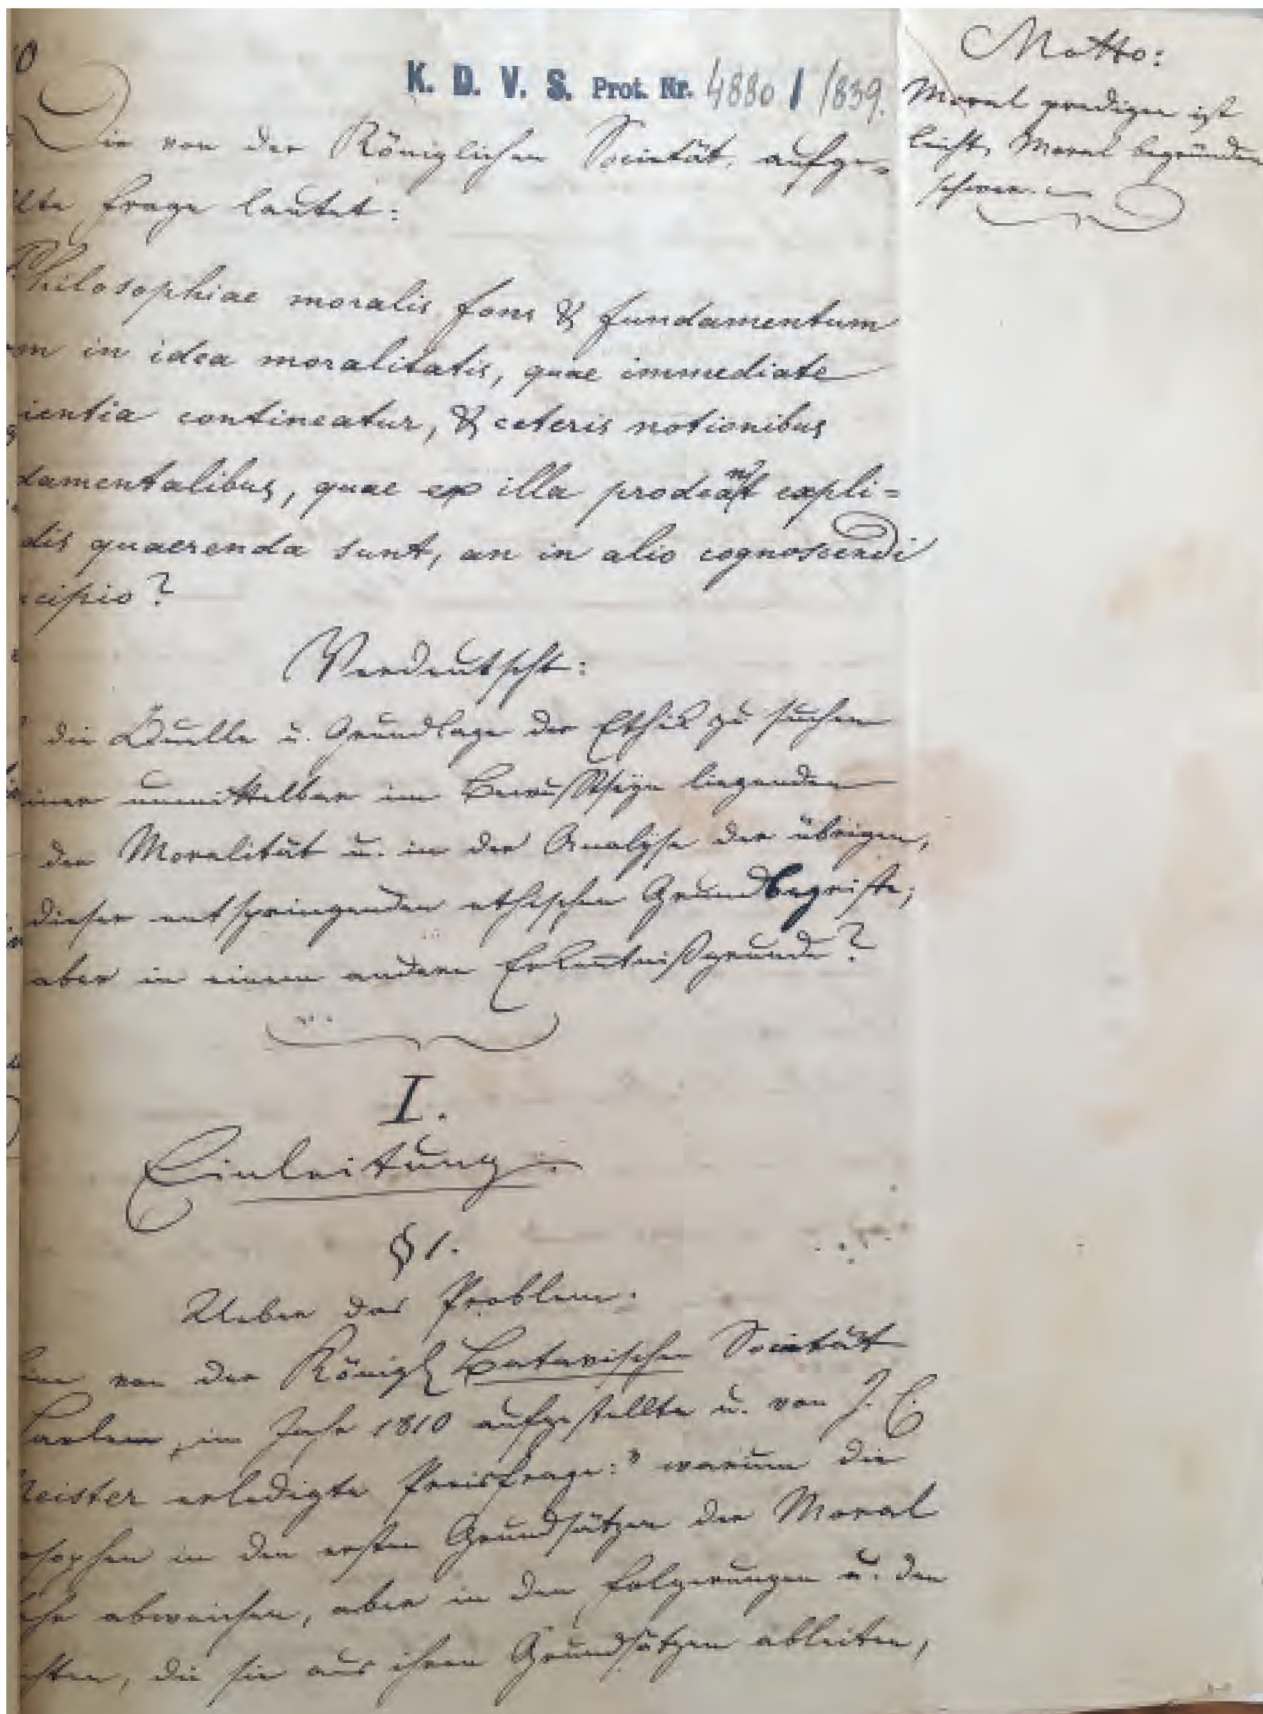 K. D. V. S. Prot. Nr. 4880 / 1839.
Motto:
Moral predigen ist
leicht, Moral begründen
schwer.
Die von der Königlichen Societät aufge=
llte Frage lautet:
Philosophiae moralis fons & fundamentum
in idea moralitatis, quae immediate
ientia contineatur, & ceteris notionibus
damentalibus, quae ex illa prodeant expli=
dis quaerenda sunt, an in alio cognoscendi
cipio?
Verdeutscht:
die Quelle u. Grundlage der Ethik zu suchen
einer unmittelbar im Bewußtseyn liegenden
der Moralität u. in der Analyse der übrigen,
dieser entspringenden ethischen Grundbegriffe;
aber in einem andern Erkenntnißgrunde?
I.
Einleitung.
§ 1.
Ueber das Problem.
von der Königl Batavischen Societät
Harlem, im Jahr 1810 aufgestellte u. von J. C.
Meister erledigte Preisfrage: "warum die
osophen in den ersten Grundsätzen der Moral
ehr abweichen, aber in den Folgerungen u. den
chten, die sie aus ihren Grundsätzen ableiten,